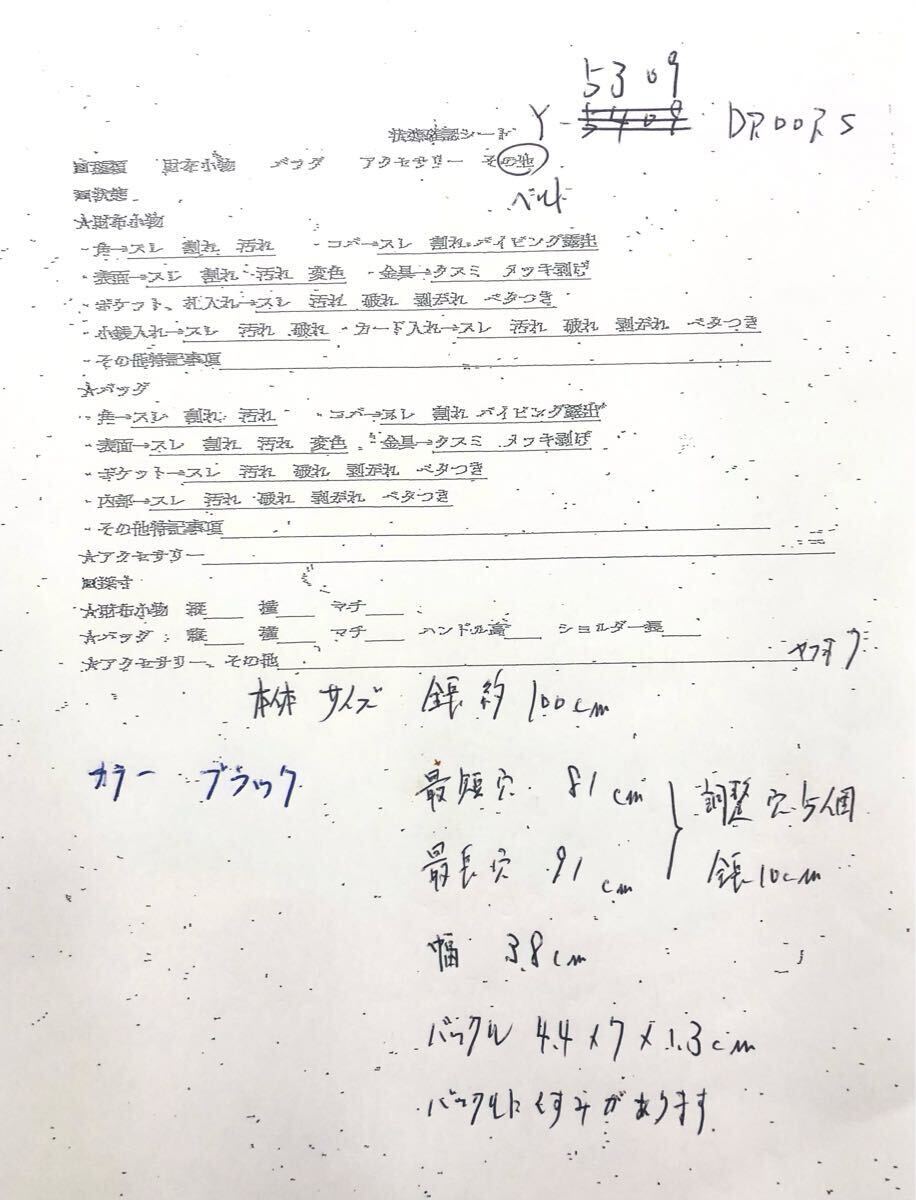 5309
状態確認シート Y-5409 DROORS
■種類 財布小物 バッグ アクセサリー その他
ベルト
■状態
★財布小物
・角→スレ 割れ 汚れ ・コバ→スレ 割れ パイピング露出
・表面→スレ 割れ 汚れ 変色 ・金具→クスミ メッキ剥げ
・ポケット、札入れ→スレ 汚れ 破れ 剥がれ ベタつき
・小銭入れ→スレ 汚れ 破れ ・カード入れ→スレ 汚れ 破れ 剥がれ ベタつき
・その他特記事項
★バッグ
・角→スレ 割れ 汚れ ・コバ→スレ 割れ パイピング露出
・表面→スレ 割れ 汚れ 変色 ・金具→クスミ メッキ剥げ
・ポケット→スレ 汚れ 破れ 剥がれ ベタつき
・内部→スレ 汚れ 破れ 剥がれ ベタつき
・その他特記事項
★アクセサリー
■採寸
★財布小物 縦 横 マチ
★バッグ:縦 横 マチ ハンドル高 ショルダー長
★アクセサリー、その他 ヤフオク
本体サイズ 全長約100cm
カラー ブラック
最短穴 81cm 調整穴5個
最長穴 91cm 全長10cm
幅 3.8cm
バックル 4.4×7×1.3cm
バックルにくすみがあります